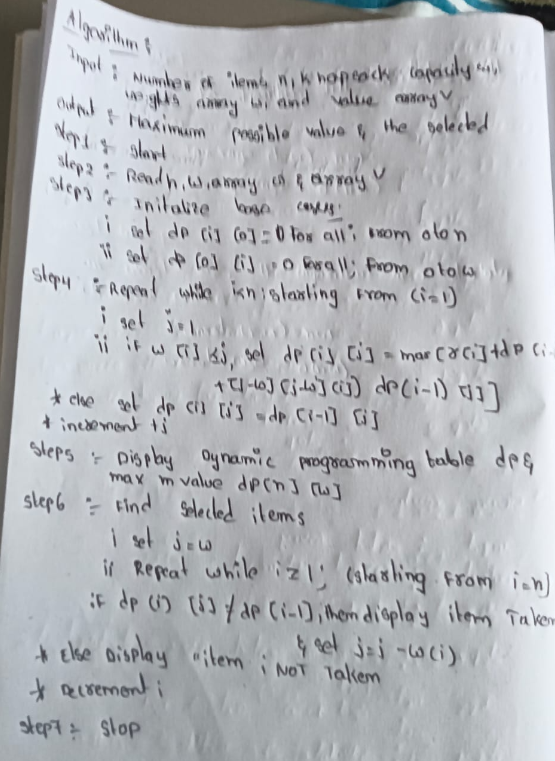 Algorithm :
Input : Number of items n, knopsack capacity w,
weights array w and value array v
output : Maximum possible value & the selected
step1 : start
step2 : Read n, w, array w & array v
step3 : Initalize base cases:
i set dp [i] [0] = 0 for all i from 0 to n
ii set dp [0] [j] = 0 for all j from 0 to w
step4 : Repeat while i≤n; starting from (i=1)
i set j=1
ii if w [i] ≤j, set dp [i] [j] = max [v[i] + dp [i-
dp (i-1) [j]]
* else set dp [i] [j] = dp [i-1] [j]
* increment +j
step5 :- Display Dynamic programming table dp &
max m value dp[n] [w]
step6 :- Find selected items
i set j=w
ii Repeat while i≥1; (starting from i=n)
if dp (i) [j] ≠ dp (i-1), them display item Taken
& set j=j-w(i)
* Else Display "item i NOT Taken
* Decrement i
step7 :- Stop